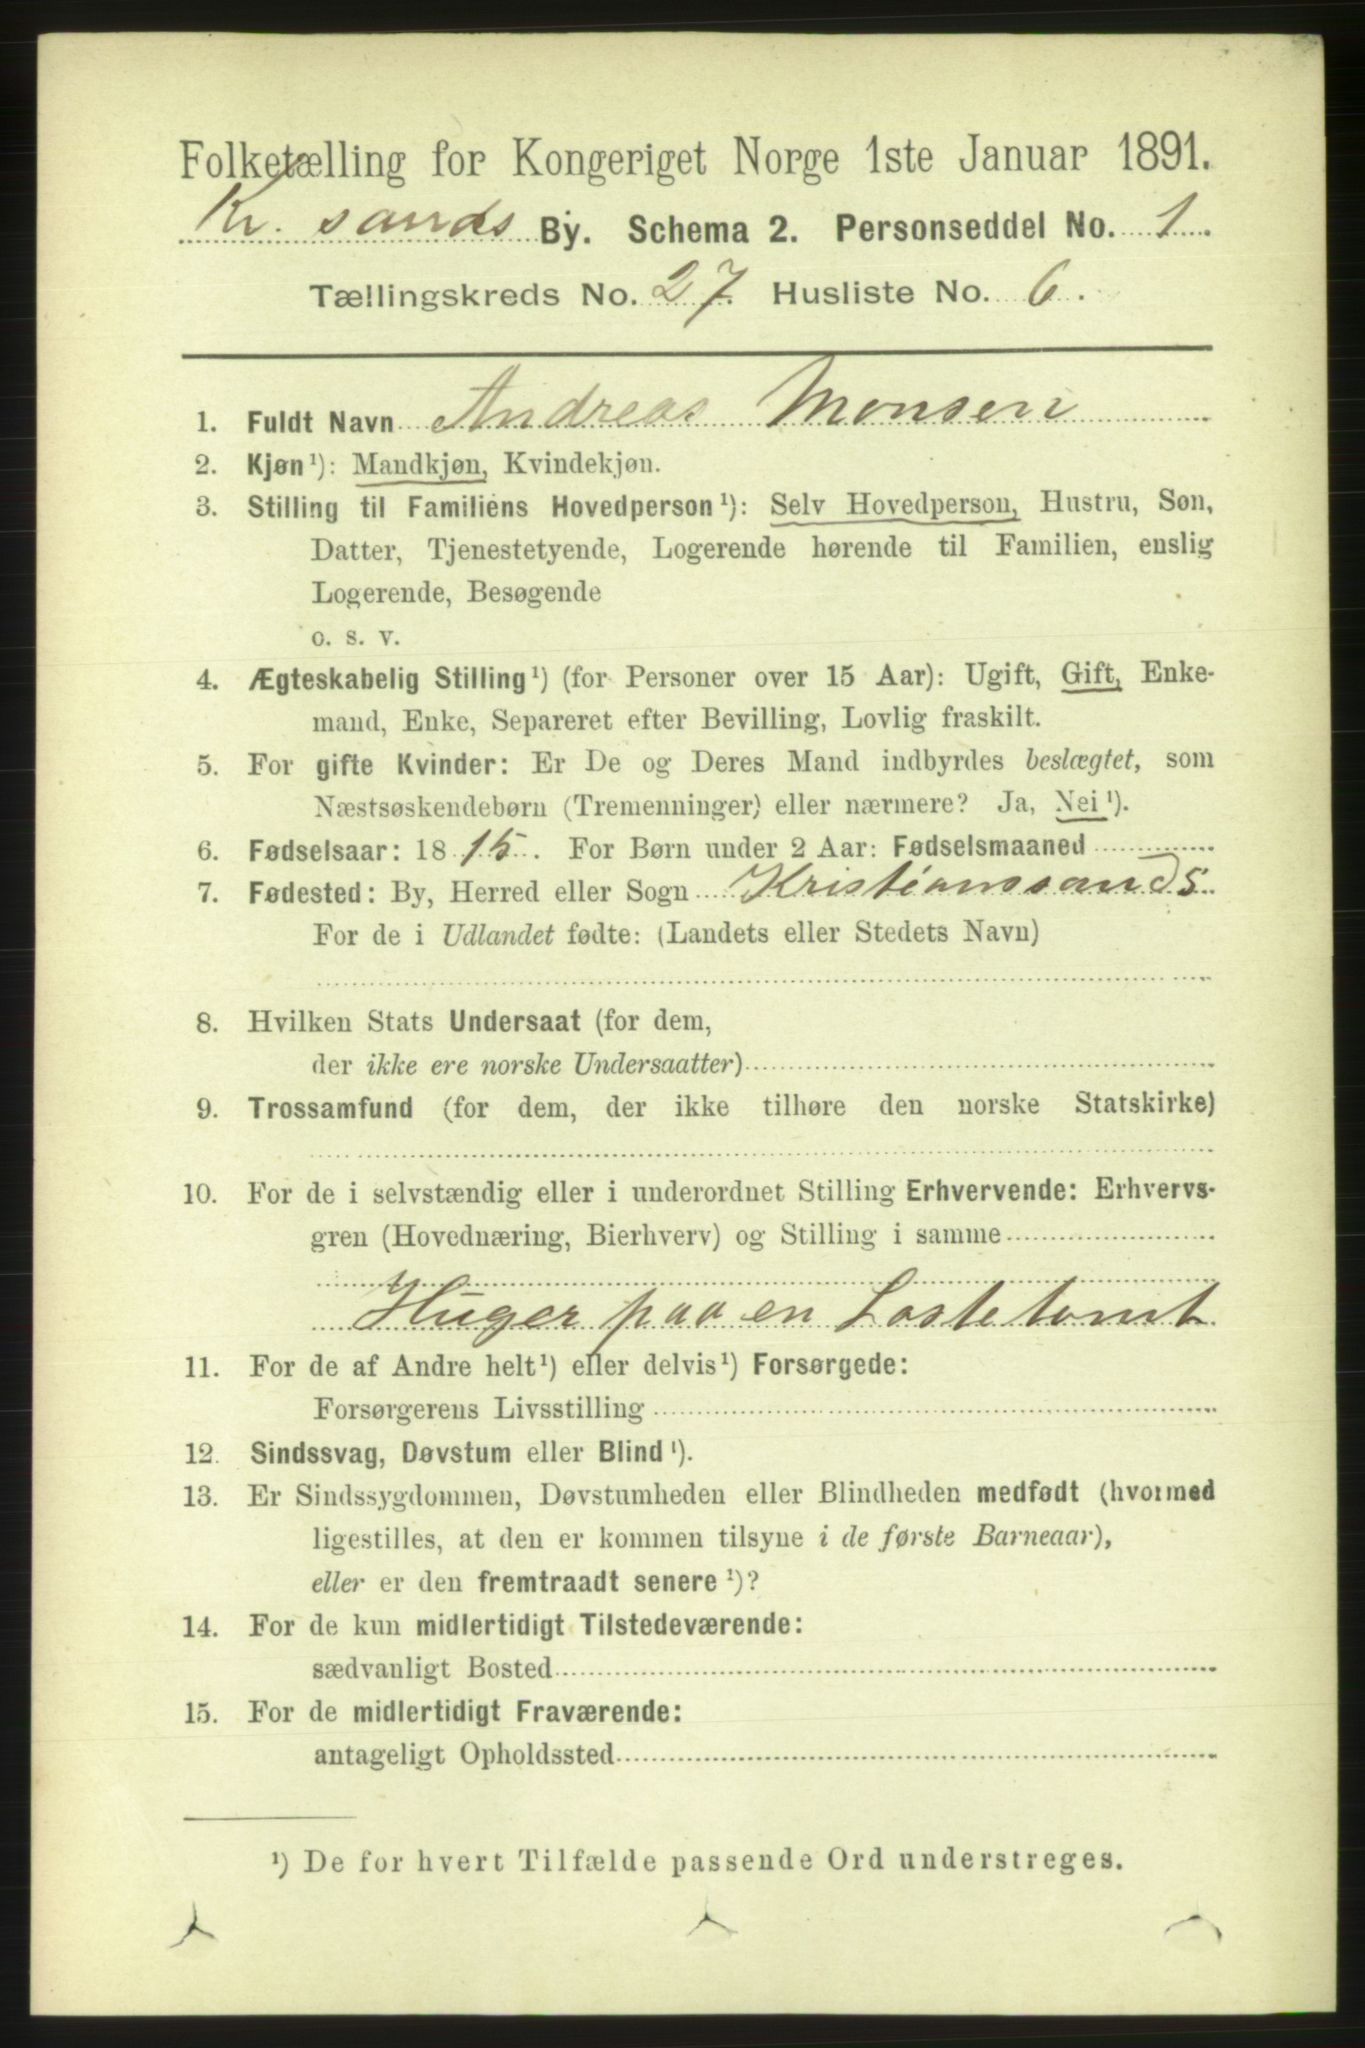 Folketælling for Kongeriget Norge 1ste Januar 1891.
Kr. sands By. Schema 2. Personseddel No. 1.
Tællingskreds No. 27. Husliste No. 6.
1. Fuldt Navn Andreas Monsen
2. Kjøn ¹): Mandkjøn, Kvindekjøn.
3. Stilling til Familiens Hovedperson ¹): Selv Hovedperson, Hustru, Søn,
Datter, Tjenestetyende, Logerende hørende til Familien, enslig
Logerende, Besøgende
o. s. v.
4. Ægteskabelig Stilling ¹) (for Personer over 15 Aar): Ugift, Gift, Enke-
mand, Enke, Separeret efter Bevilling, Lovlig fraskilt.
5. For gifte Kvinder: Er De og Deres Mand indbyrdes beslægtet, som
Næstsøskendebørn (Tremenninger) eller nærmere? Ja, Nei ¹).
6. Fødselsaar: 1815. For Børn under 2 Aar: Fødselsmaaned
7. Fødested: By, Herred eller Sogn Kristianssands.
For de i Udlandet fødte: (Landets eller Stedets Navn)
8. Hvilken Stats Undersaat (for dem,
der ikke ere norske Undersaatter)
9. Trossamfund (for dem, der ikke tilhøre den norske Statskirke)
10. For de i selvstændig eller i underordnet Stilling Erhvervende: Erhvervs-
gren (Hovednæring, Bierhverv) og Stilling i samme
Huger paa en Lastetomt
11. For de af Andre helt ¹) eller delvis ¹) Forsørgede:
Forsørgerens Livsstilling
12. Sindssvag, Døvstum eller Blind ¹).
13. Er Sindssygdommen, Døvstumheden eller Blindheden medfødt (hvormed
ligestilles, at den er kommen tilsyne i de første Barneaar),
eller er den fremtraadt senere ¹)?
14. For de kun midlertidigt Tilstedeværende:
sædvanligt Bosted
15. For de midlertidigt Fraværende:
antageligt Opholdssted
¹) De for hvert Tilfælde passende Ord understreges.